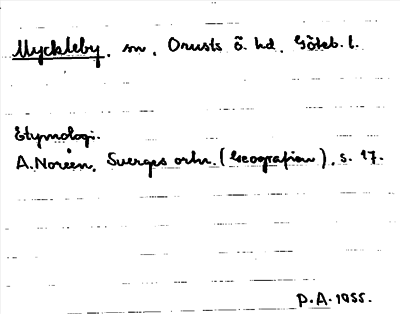 Myckleby, sn, Orusts ö. hd, Göteb. l.
Etymologi.
A. Noreen, Sverges ortn. (Geografien), s. 17.
P.A. 1955.